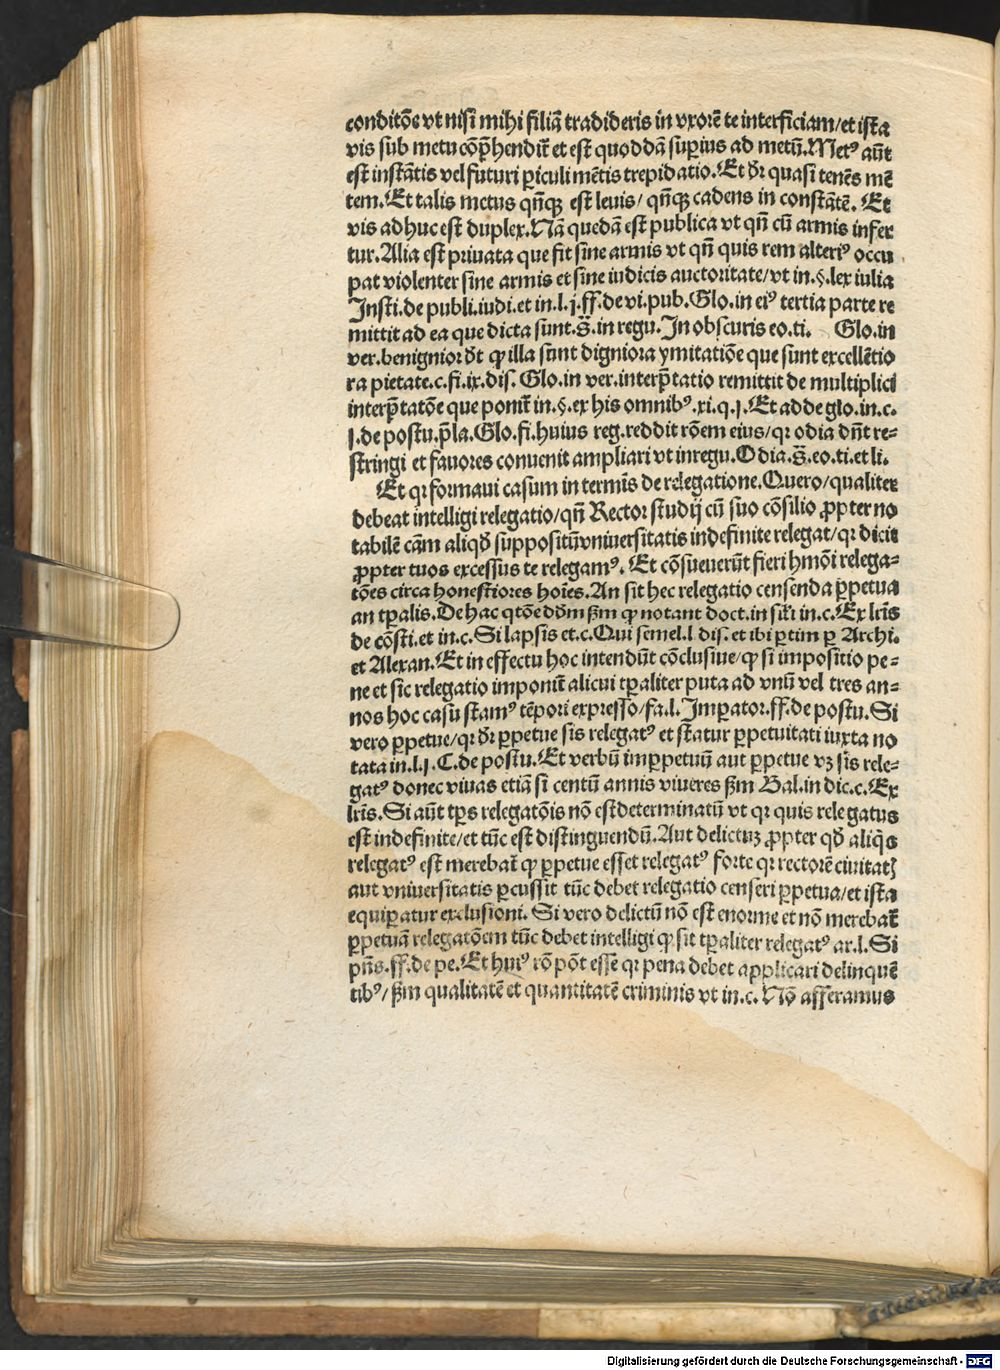 conditōe vt nisi mihi filiā tradideris in vxorē te interficiam/et ista
vis sub metu cōp̄hendit̄ et est quoddā superius ad metū.Metꝰ aūt
est instātis vel futuri ꝑiculi mētis trepidatio.Et d̄r quasi tenēs mē
tem.Et talis metus qn̄qꝫ est leuis/ qn̄qꝫ cadens in constātē. Et
vis adhuc est duplex.Nā quedā est publica vt qn̄ cū armis infer
tur.Alia est priuata que fit sine armis vt qn̄ quis rem alteriꝰ occu
pat violenter sine armis et sine iudicis auctoritate/vt in.§.lex iulia
Insti.de publi.iudi.et in.l.j.ff.de vi.pub.Glo.in eiꝰ tertia parte re
mittit ad ea que dicta sunt.s̄.in regu.In obscuris eo.ti. Glo.in
ver.benignior d̄t ꝙ illa sunt digniora ymitatiōe que sunt excellētio
ra pietate.c.fi.ix.dis. Glo.in ver.interp̄tatio remittit de multiplici
interp̄tatōe que ponit̄ in.§.ex his omnibꝰ.xi.q.j.Et adde glo.in.c.
j.de postu.p̄la.Glo.fi.huius reg.reddit rōem eius/qr odia dn̄t re-
stringi et fauores conuenit ampliari vt inregu.Odia.s̄.eo.ti.et li.
Et qr formaui casum in termīs de relegatione.Quero/qualiter
debeat intelligi relegatio/qn̄ Rector studij cū suo cōsilio ꝓpter no
tabilē cām aliqd̄ suppositū vniuersitatis indefinite relegat/qr dicit
ꝓpter tuos excessus te relegamꝰ. Et cōsueuerūt fieri hmōi relega-
tōes circa honestiores hoīes.An sit hec relegatio censenda ꝑpetua
an tꝑalis.De hac qtōe dōm ẜm ꝙ notant doct.in sīli in.c.Ex lrīs
de cōsti.et in.c.Si lapsis et.c.Qui semel.l dis.et ibi ꝑtim ꝑ Archi.
et Alexan.Et in effectu hoc intendūt cōclusiue/ꝙ si impositio pe-
ne et sic relegatio imponit̄ alicui tꝑaliter puta ad vnū vel tres an-
nos hoc casu stamꝰ tēpori expresso/fa.l.Imperator.ff.de postu.Si
vero ꝑpetue/qr d̄r ꝑpetue sis relegatꝰ et statur ꝑpetuitati iuxta no
tata in.l.j.C.de postu.Et verbū imꝑpetuū aut ꝑpetue vꝫ sis rele-
gatꝰ donec viuas etiā si centū annis viueres ẜm Bal.in dic.c.Ex
lrīs.Si aūt tp̄s relegatōis nō est determinatū vt qr quis relegatus
est indefinite/et tūc est distinguendū.Aut delictuꝫ ꝓpter qd̄ aliqs
relegatꝰ est merebat̄ ꝙ ꝑpetue esset relegatꝰ forte qr rectorē ciuitatꝭ
aut vniuersitatis ꝑcussit tūc debet relegatio censeri ꝑpetua/et ista
equiꝑatur exclusioni. Si vero delictū nō est enorme et nō merebat̄
ꝑpetuā relegatōem tūc debet intelligi ꝙ sit tꝑaliter relegatꝰ ar.l.Si
pn̄s.ff.de pe.Et huiꝰ rō pōt esse qr pena debet applicari delinquē
tibꝰ/ẜm qualitatē et quantitatē criminis vt in.c. Nō afferamus
Digitalisierung gefördert durch die Deutsche Forschungsgemeinschaft - DFG